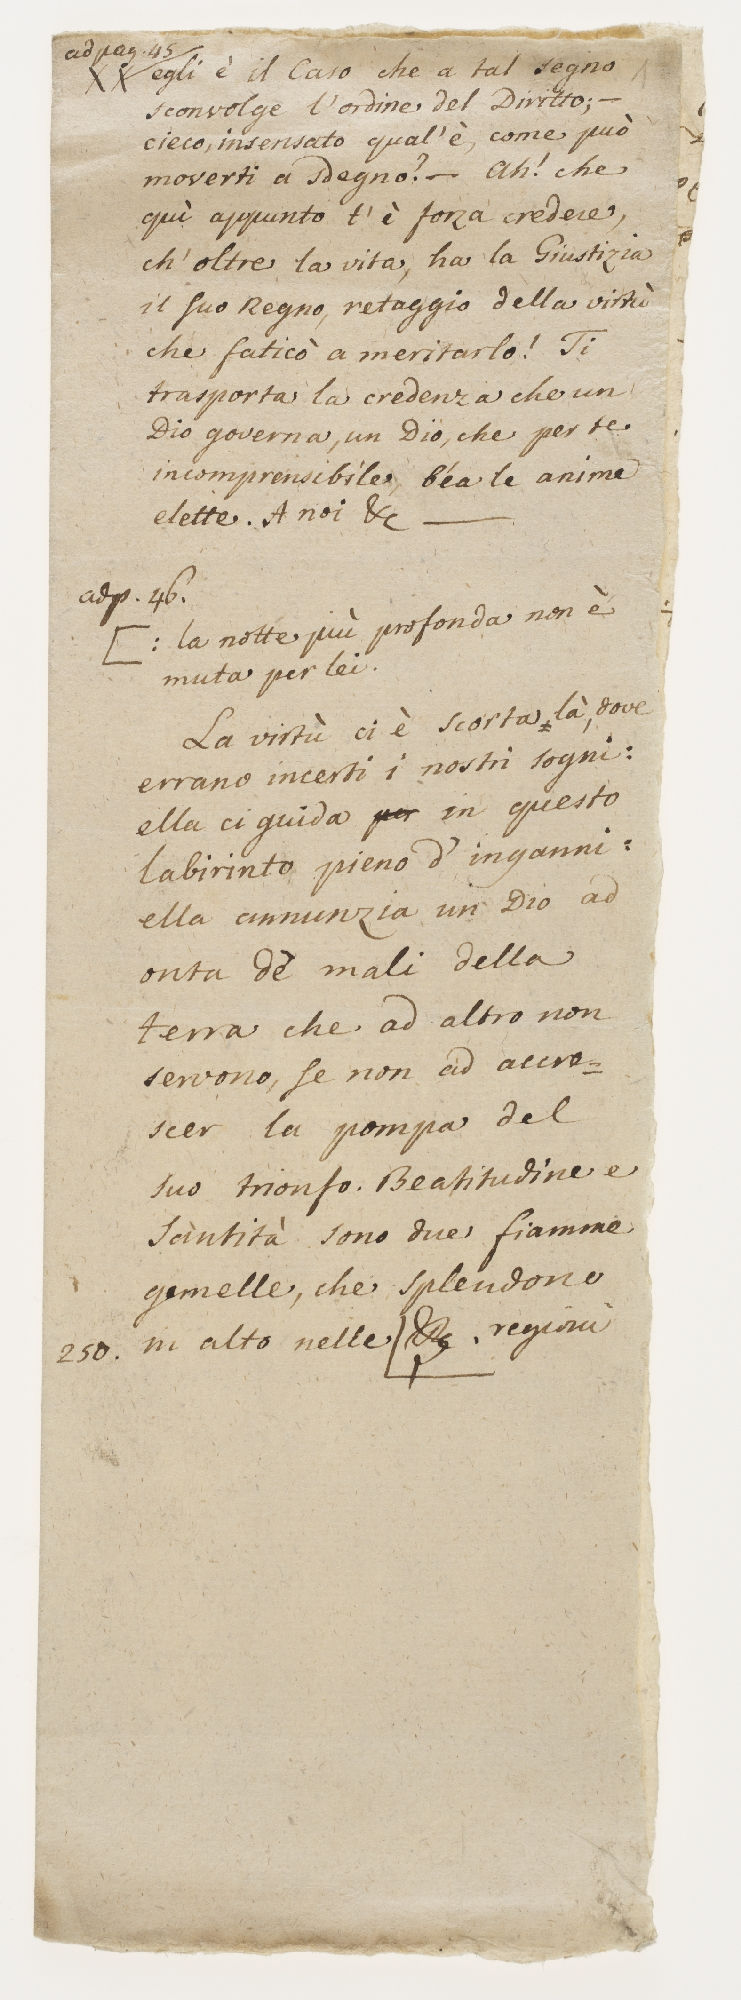 ad pag. 45
XX egli è il Caso che a tal segno
sconvolge l'ordine del Diritto; —
cieco, insensato qual'è, come può
moverti a sdegno? — Ah! che
quì appunto t'è forza credere,
ch'oltre la vita, ha la Giustizia
il suo Regno, retaggio della virtù
che faticò a meritarlo! Ti
trasporta la credenza che un
Dio governa, un Dio, che per te
incomprensibile, béa le anime
elette. A noi &c ———
ad p. 46.
[: la notte più profonda non è
muta per lei.
La virtù ci è scorta là, dove
errano incerti i nostri sogni:
ella ci guida per in questo
labirinto pieno d'inganni:
ella annunzia un Dio ad
onta dè mali della
terra che ad altro non
servono, se non ad accre=
scer la pompa del
suo trionfo. Beatitudine e
Santità sono due fiamme
gemelle, che splendono
250. in alto nelle &c. regioni